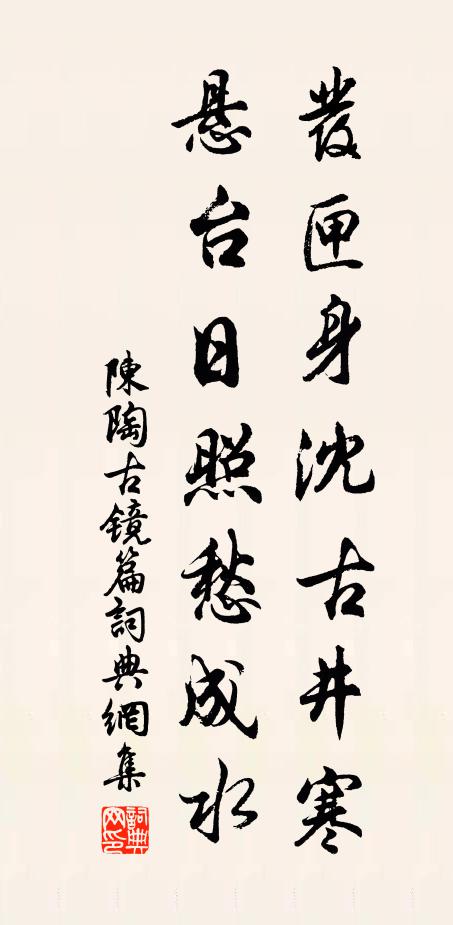 發匣身沈古井寒
悬台日照愁成水
陳陶古镜篇詞典網集
詞典网印